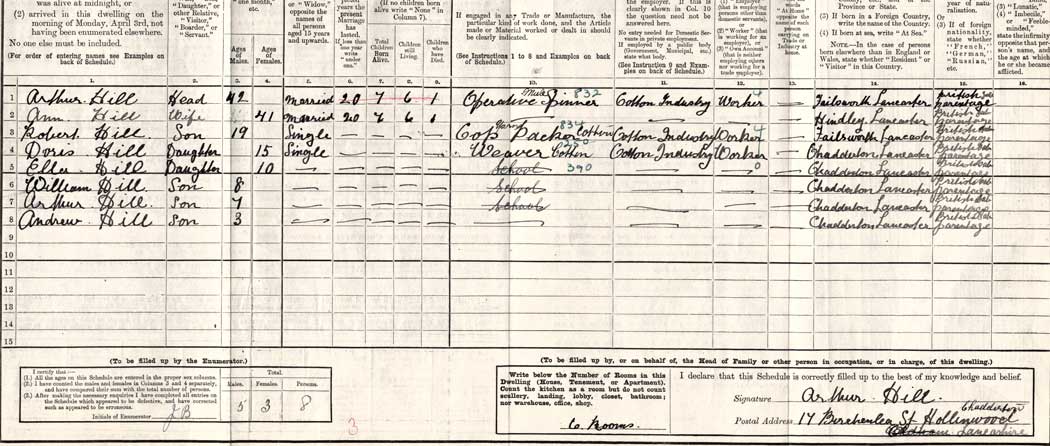 was alive at midnight, or
(2) arrived in this dwelling on the morning of Monday, April 3rd, not having been enumerated elsewhere.
No one else must be included.
(For order of entering names see Examples on back of Schedule.)
"Daughter," or other Relative, "Visitor," "Boarder," or "Servant."
one month, etc.
Ages of Males.
Ages of Females.
or "Widow," opposite the names of all persons aged 15 years and upwards.
years the present Marriage has lasted. If less than one year write "under one."
(If no children born alive write "None" in Column 7).
Total Children Born Alive.
Children still Living.
Children who have Died.
If engaged in any Trade or Manufacture, the particular kind of work done, and the Article made or Material worked or dealt in should be clearly indicated.
(See Instructions 1 to 8 and Examples on back of Schedule.)
the employer. If this is clearly shown in Col. 10 the question need not be answered here.
No entry needed for Domestic Servants in private employment.
If employed by a public body (Government, Municipal, etc.) state what body.
(See Instruction 9 and Examples on back of Schedule.)
"Employer" (that is employing persons other than domestic servants), or
(2) "Worker" (that is working for an employer), or
(3) "Own Account" (that is neither employing others nor working for a trade employer).
words "At Home" opposite the name of each person carrying on Trade or Industry at Home.
Province or State.
(3) If born in a Foreign Country, write the name of the Country.
(4) If born at sea, write "At Sea."
NOTE.—In the case of persons born elsewhere than in England or Wales, state whether "Resident" or "Visitor" in this Country.
year of naturalisation. Or
(3) If of foreign nationality, state whether "French," "German," "Russian," etc.
(3) "Lunatic,"
(4) "Imbecile," or "Feeble-minded," state the infirmity opposite that person's name, and the age at which he or she became afflicted.
1. 2. 3. 4. 5. 6. 7. 8. 9. 10. 11. 12. 13. 14. 15. 16.
1 Arthur Hill Head 42 Married 20 7 6 1 Operative Mule Spinner 832 Cotton Industry Worker 4 — Failsworth Lancaster British parentage
2 Ann. Hill Wife 41 Married 20 7 6 1 — — — — Hindley. Lancaster British parentage
3 Robert. Hill. Son 19 Single — — — — Cop Packer Cotton 834 Cotton Industry Worker 4 — Failsworth Lancaster British parentage
4 Doris Hill Daughter 15 Single — — — — Weaver Cotton Cotton Industry Worker — Chadderton Lancaster British parentage
5 Hill Daughter 10 — — — — — School 390 — — — Chadderton Lancaster British parentage
6 William Hill Son 8 — — — — — School — — — Chadderton Lancaster British parentage
7 Arthur Hill. Son 7 — — — — — School — — — Chadderton Lancaster British parentage
8 Andrew. Hill Son 3 — — — — — — — — — Chadderton Lancaster British parentage
9
10
11
12
13
14
15
(To be filled up by the Enumerator.)
I certify that:—
(1.) All the ages on this Schedule are entered in the proper sex columns.
(2.) I have counted the males and females in Columns 3 and 4 separately, and have compared their sum with the total number of persons.
(3.) After making the necessary enquiries I have completed all entries on the Schedule which appeared to be defective, and have corrected such as appeared to be erroneous.
Initials of Enumerator JB
Total.
Males. Females. Persons.
5 3 8
3
(To be filled up by, or on behalf of, the Head of Family or other person in occupation, or in charge, of this dwelling.)
Write below the Number of Rooms in this Dwelling (House, Tenement, or Apartment). Count the kitchen as a room but do not count scullery, landing, lobby, closet, bathroom; nor warehouse, office, shop.
6 Rooms.
I declare that this Schedule is correctly filled up to the best of my knowledge and belief.
Signature Arthur Hill.
Postal Address 17 Birchenlea St Hollinwood Chadderton
Oldham Lancashire